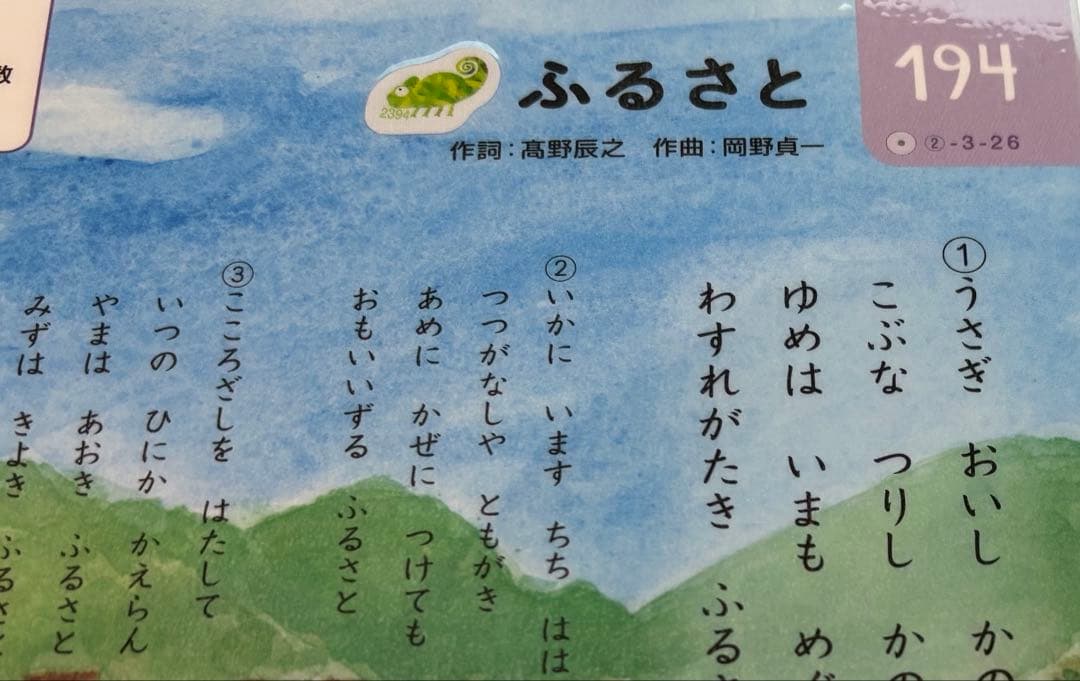 数
ふるさと
2394
作詞：髙野辰之　作曲：岡野貞一
194
②-3-26
①うさぎ　おいし　かの
こぶな　つりし　かの
ゆめは　いまも　めぐ
わすれがたき　ふるさ
②いかに　います　ちち　はは
つつがなしや　ともがき
あめに　かぜに　つけても
おもいいずる　ふるさと
③こころざしを　はたして
いつの　ひにか　かえらん
やまは　あおき　ふるさと
みずは　きよき　ふるさと